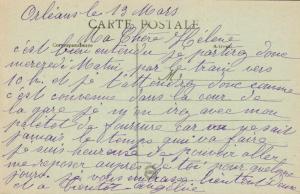 Orléans le 13 Mars
CARTE POSTALE
Ma Chère Hélène
Correspondance
c'est bien entendu je partirai donc
mercredi Matin par le train vers
10 h. et je t'attendrai donc comme
c'est convenu dans la cour de
la gare je m'y en irai avec mon
paletot de fourrure car on ne sait
jamais le temps qui va faire
je suis heureuse de pouvoir aller
me reposer auprès de toi pour quelques
jours je vous embrasse
et à bientôt Angèle